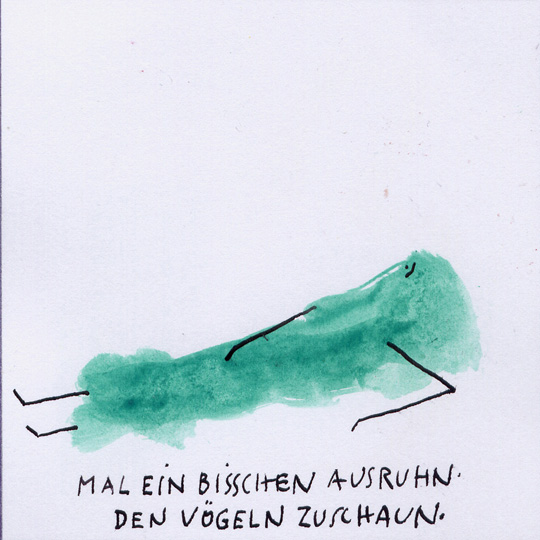 MAL EIN BISSCHEN AUSRUHN.
DEN VÖGELN ZUSCHAUN.